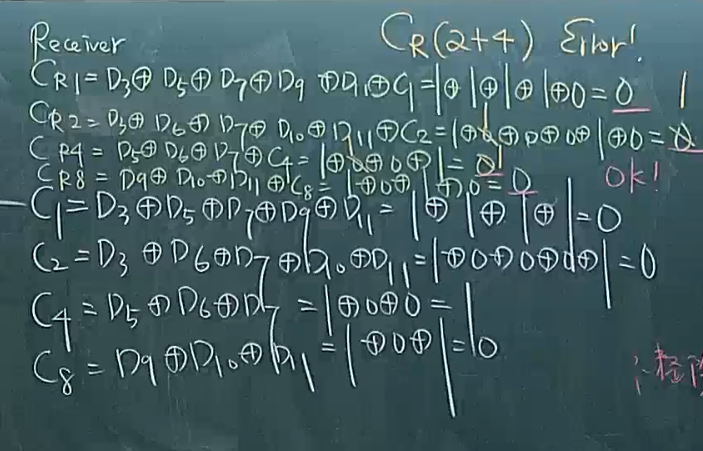 Receiver
CR(2+4) Error!
CR1 = D3⊕ D5⊕ D7⊕ D9 ⊕D11⊕C1=1⊕1⊕1⊕1⊕0=0 1
CR2 = D3⊕ D6⊕ D7⊕ D10⊕D11⊕C2=1⊕ ⊕0⊕0⊕1⊕0=0
CR4= D5⊕ D6⊕ D7⊕C4=1⊕ ⊕0⊕1=0
CR8 = D9⊕ D10⊕D11⊕C8=1⊕0⊕1⊕0=0 OK!
C1=D3⊕D5⊕D7⊕D9⊕D11=1⊕1⊕1⊕1=0
C2=D3⊕D6⊕D7⊕D10⊕D11=1⊕0⊕0⊕0⊕1=0
C4=D5⊕D6⊕D7=1⊕0⊕0=1
C8=D9⊕D10⊕D11=1⊕0⊕1=0